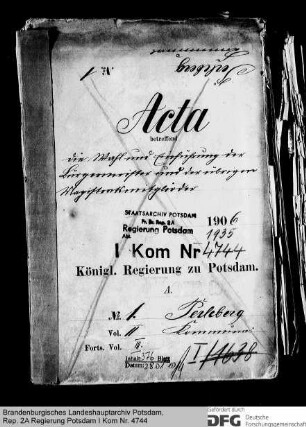 Perleberg
1 A
Acta
betreffend
die Wahl und Einführung der
Bürgermeister und der übrigen
Magistratsmitglieder
STAATSARCHIV POTSDAM
Pr. Br. Rep. 2A
Regierung Potsdam
Abt.
1906
1935
I Kom Nr 4744
Königl. Regierung zu Potsdam.
A.
№ 1. Perleberg
Vol. II
Forts. Vol. II.
Inhalt 376 Blatt
Datum
Brandenburgisches Landeshauptarchiv Potsdam,
Rep. 2A Regierung Potsdam I Kom Nr. 4744
Gefördert durch
DFG Deutsche
Forschungsgemeinschaft